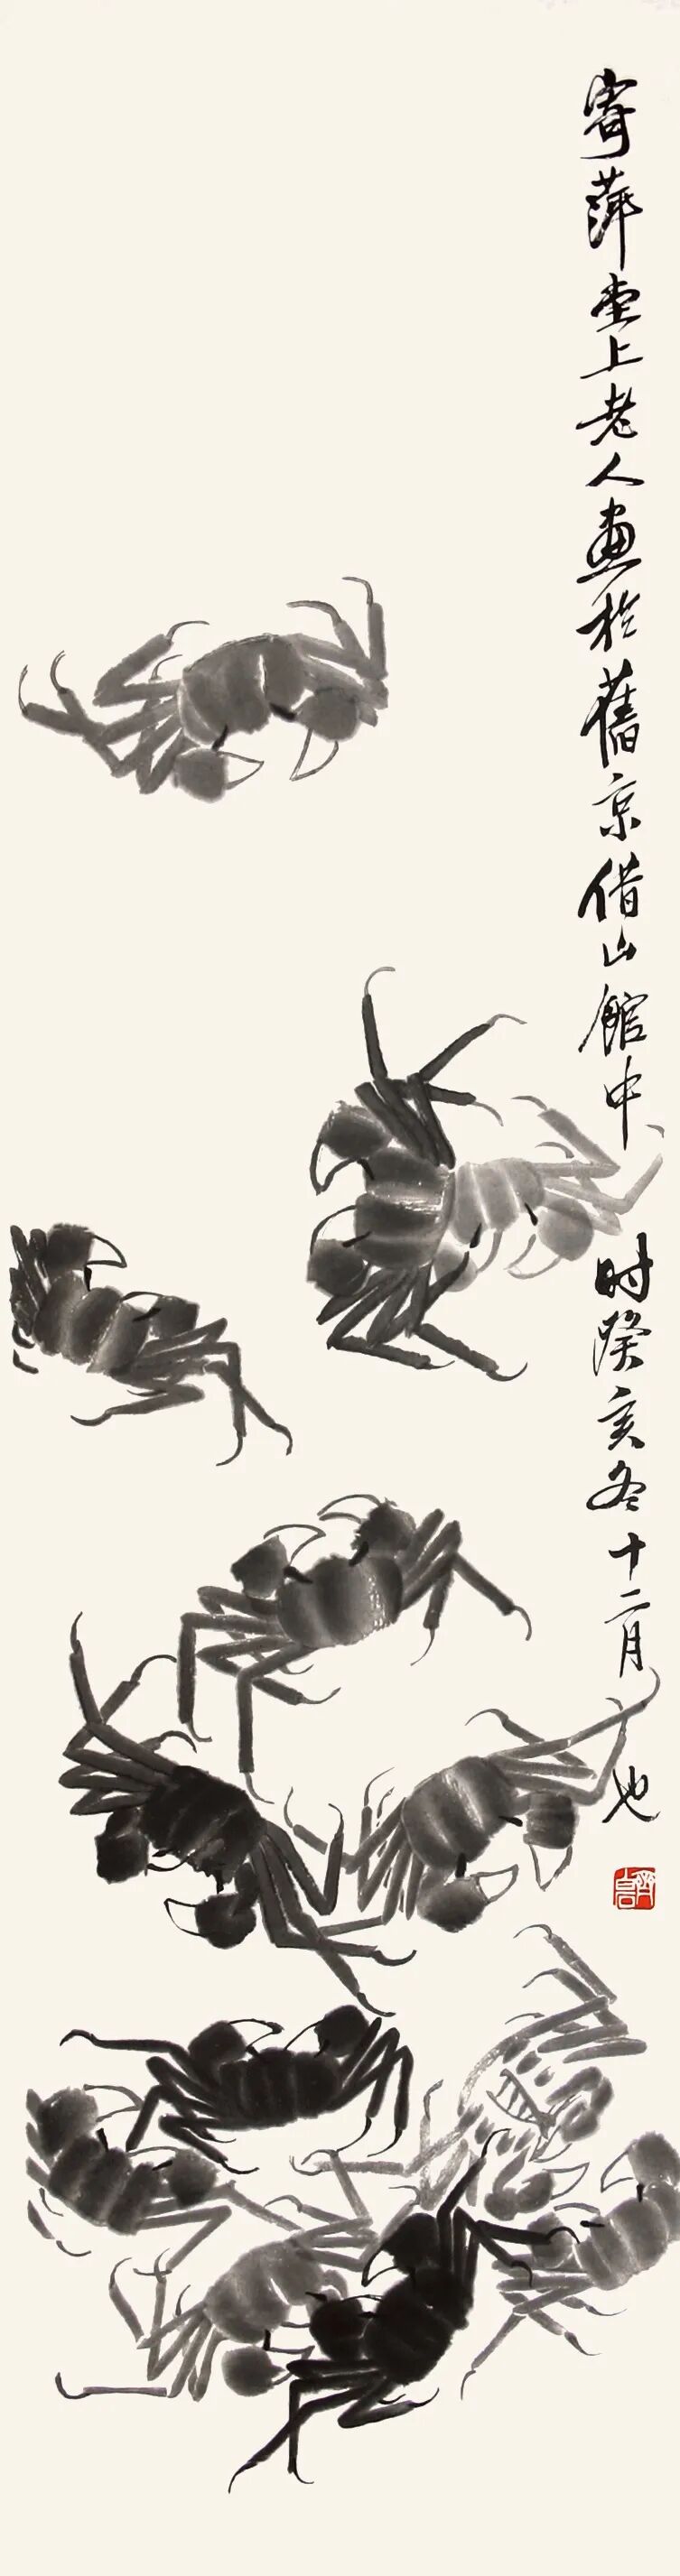 寄萍堂上老人畫於舊京借山館中時癸亥冬十二月也